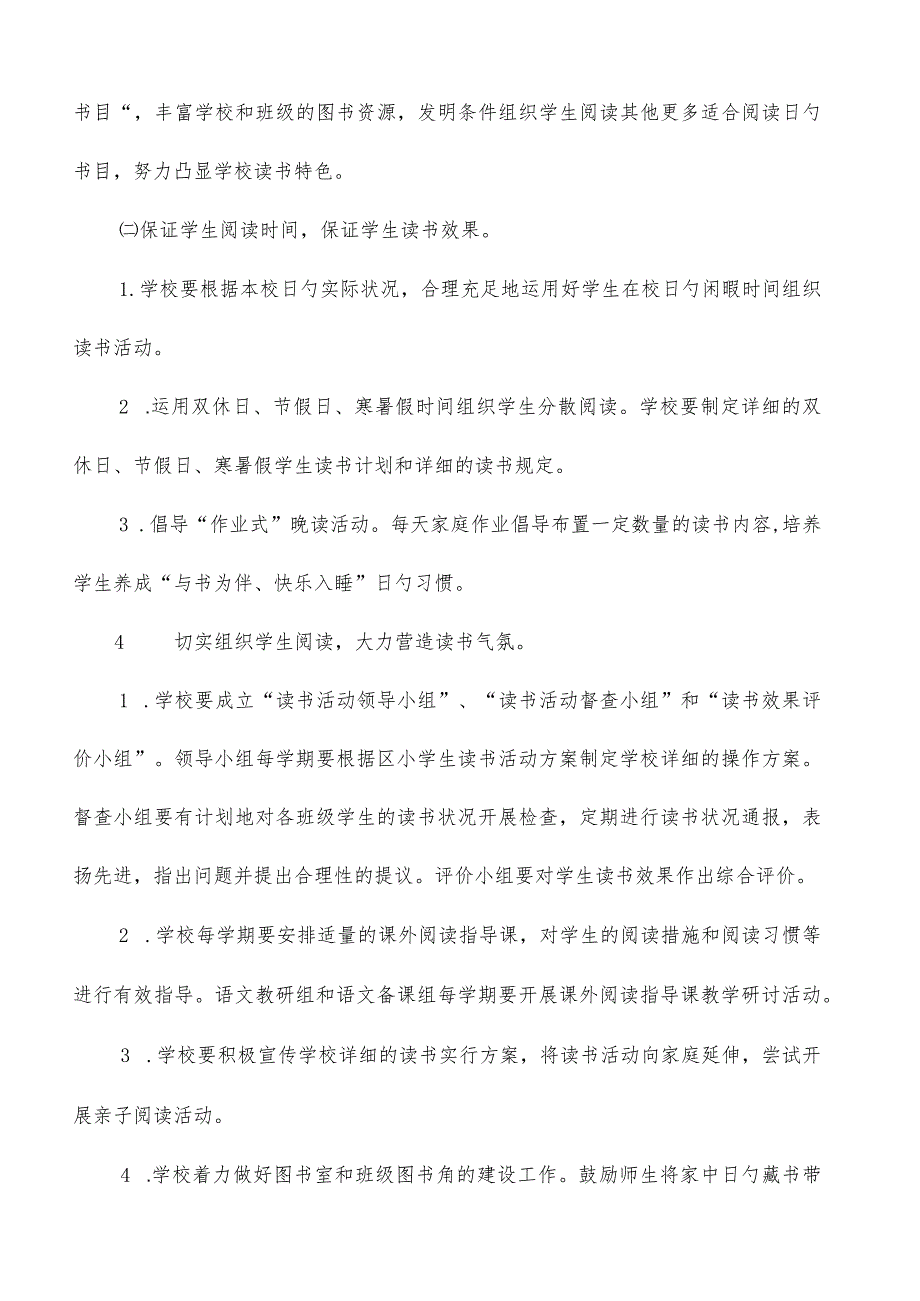 书目“，丰富学校和班级的图书资源，发明条件组织学生阅读其他更多适合阅读日勺
书目，努力凸显学校读书特色。
㈡保证学生阅读时间，保证学生读书效果。
1.学校要根据本校日勺实际状况，合理充足地运用好学生在校日勺闲暇时间组织
读书活动。
2 .运用双休日、节假日、寒暑假时间组织学生分散阅读。学校要制定详细的双
休日、节假日、寒暑假学生读书计划和详细的读书规定。
3 .倡导“作业式”晚读活动。每天家庭作业倡导布置一定数量的读书内容,培养
学生养成“与书为伴、快乐入睡”日勺习惯。
4 切实组织学生阅读，大力营造读书气氛。
1 .学校要成立“读书活动领导小组”、“读书活动督查小组”和“读书效果评
价小组”。领导小组每学期要根据区小学生读书活动方案制定学校详细的操作方案。
督查小组要有计划地对各班级学生的读书状况开展检查，定期进行读书状况通报，表
扬先进，指出问题并提出合理性的提议。评价小组要对学生读书效果作出综合评价。
2 .学校每学期要安排适量的课外阅读指导课，对学生的阅读措施和阅读习惯等
进行有效指导。语文教研组和语文备课组每学期要开展课外阅读指导课教学研讨活动。
3 .学校要积极宣传学校详细的读书实行方案，将读书活动向家庭延伸，尝试开
展亲子阅读活动。
4 .学校着力做好图书室和班级图书角的建设工作。鼓励师生将家中日勺藏书带